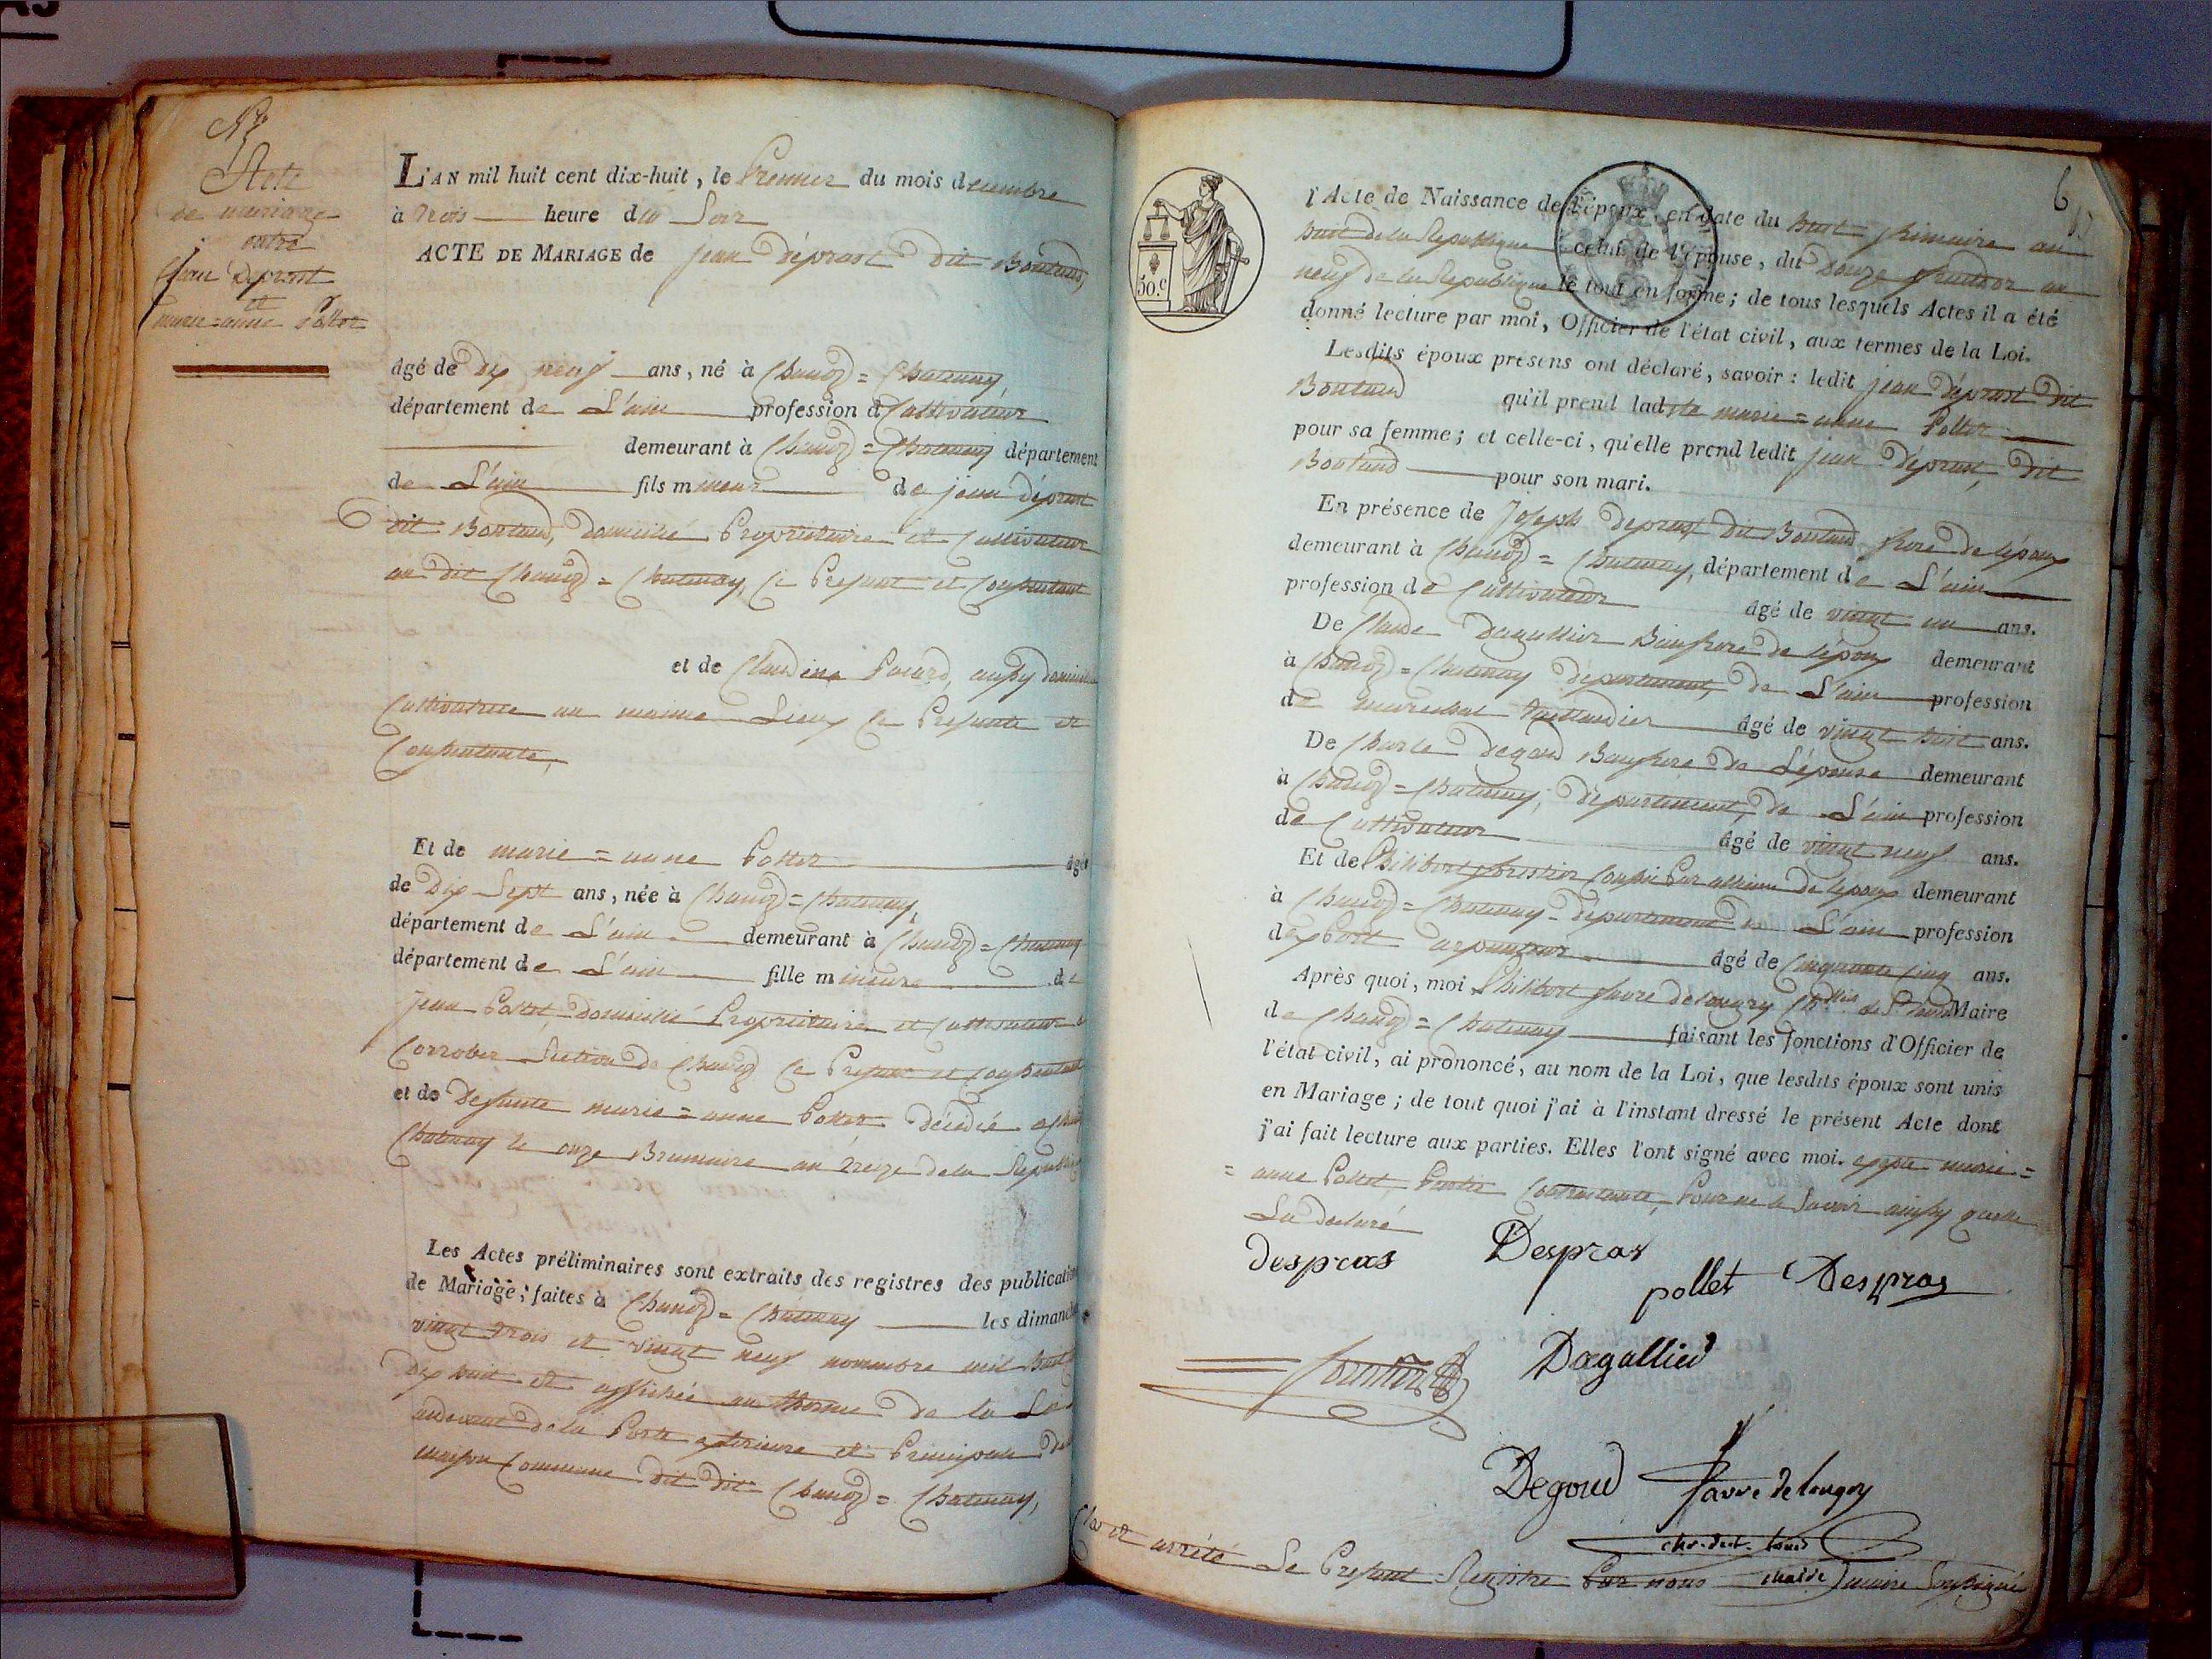 Acte
de mariage
entre
jean Deprost
et
marie=anne Pollet
L'AN mil huit cent dix-huit, le Premier du mois decembre
à trois heure du Soir
ACTE DE MARIAGE de jean déprost dit Bontaud,
âgé de dix neuf ans, né à Chanoz=Chatenay,
département de L'ain profession d Cultivateur
demeurant à Chanoz=Chatenay département
de L'ain fils mineur de jean déprost
dit Bontaud, domicilié Propriétaire et Cultivateur
au dit Chanoz=Chatenay, Ce Present et Consentant
et de Claudine Pacard, aussy domiciliée
Cultivatrice au meime Lieux Ce Presente et
Consentante,
Et de marie=anne Pollet âgée
de Dix Sept ans, née à Chanoz=Chatenay,
département de L'ain demeurant à Chanoz=Chatenay
département de L'ain fille mineure de
Jean Pollet, domicilié Propriétaire et Cultivateur
Corrober Section de Chanoz Ce Present et Consentant
et de Defunte marie=anne Pollet décédée a Chanoz
Chatenay le onze Brumaire an treize de la Republique
Les Actes préliminaires sont extraits des registres des publications
de Mariage, faites à Chanoz=Chatenay les dimanches
vingt trois et vingt neuf novembre mil huit
dix huit et affichée au therme de la Loi
audevant de la Porte exterieure et Principale de
maison Commune dit dit Chanoz=Chatenay,
6
50.c
l'Acte de Naissance de l'époux, en date du huit frimaire an
huit de la Republique celui de l'épouse, du Douze fructidor an
neuf de la Republique le tout en forme; de tous lesquels Actes il a été
donné lecture par moi, Officier de l'état civil, aux termes de la Loi.
Lesdits époux présens ont déclaré, savoir: ledit jean déprost dit
Bontaud qu'il prend ladite marie=anne Pollet
pour sa femme; et celle-ci, qu'elle prend ledit jean déprost, dit
Bontaud pour son mari.
En présence de Joseph deprost dit Bontaud frere de lépoux
demeurant à Chanoz=Chatenay, département de L'ain
profession de Cultivateur âgé de vingt un ans.
De Claude Dagallier Baufrere de lépoux demeurant
à Chanoz=Chatenay département, de L'ain profession
de marechal taillandier âgé de vingt huit ans.
De Charle degoud Baufrere de L'épouse demeurant
à Chanoz=Chatenay, département, de L'ain profession
de Cultivateur âgé de vingt neuf ans.
Et de Philibert forestier Cousin Par alliance de lepoux demeurant
à Chanoz=Chatenay=département de L'ain profession
dexpert arpenteur âgé de Cinquante Cinq ans.
Après quoi, moi Philibert favre delongry Maire
de Chanoz=Chatenay faisant les fonctions d'Officier de
l'état civil, ai prononcé, au nom de la Loi, que lesdits époux sont unis
en Mariage; de tout quoi j'ai à l'instant dressé le présent Acte dont
j'ai fait lecture aux parties. Elles l'ont signé avec moi. excepté marie=
=anne Pollet, Partie Contractante, Pour ne le Savoir ainsy quelle
La declaré
despras Despras
pollet Despras
Dagallier
Degoud favre delongry
Clos et arrêté Le Present Registre Par nous maire Soussigné